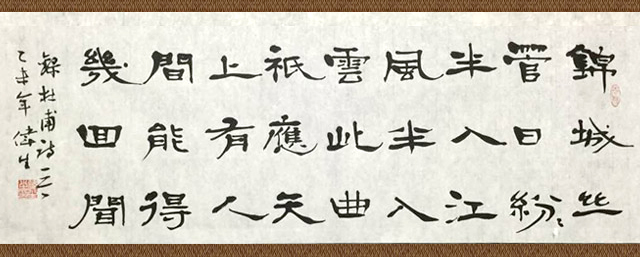 錦城丝
管日紛〻
半入江
風半入
雲此曲
祇應天
上有人
間能得
幾回聞
録杜甫诗一首
乙未年